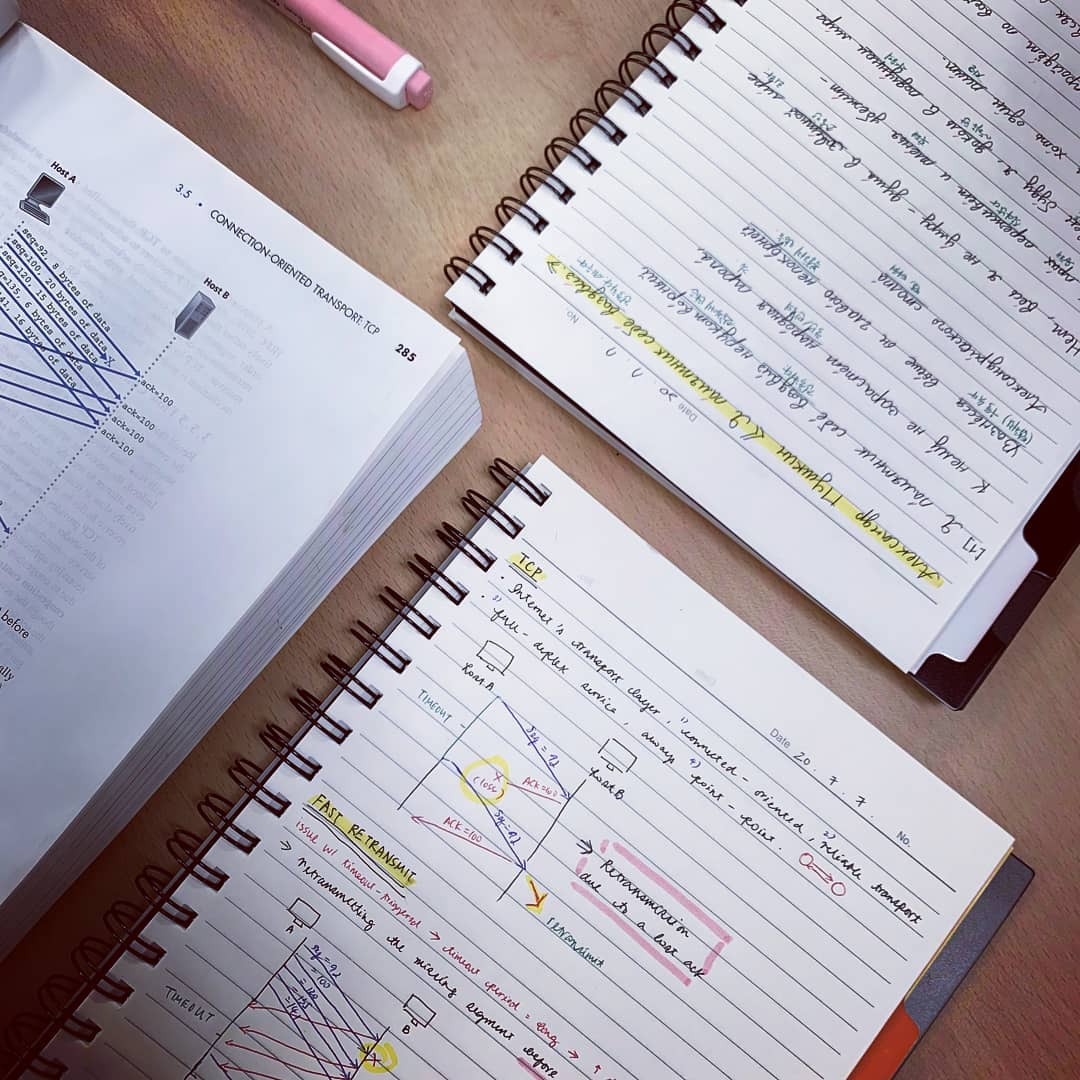 3.5 • CONNECTION-ORIENTED TRANSPORT: TCP
285
Host A
Host B
seq=92, 8 bytes of data
seq=100, 20 bytes of data
seq=120, 15 bytes of data
seq=135, 6 bytes of data
16 bytes of data
X
ack=100
ack=100
ack=100
ack=100
before
ally
Date 20.7.7.
No.
TCP
• Internet's transport layer, 1) connected-oriented, 2) reliable transport
• 3) full-duplex service, always 4) point-point.
Host A
Host B
TIMEOUT
seq=92
ACK=100
X
(loss)
seq=92
ACK=100
retransmit
→ Retransmission
due to a lost ack
FAST RETRANSMIT
issue w/ timeout-triggered → timeout period = long → ↑
→ retransmitting the missing segment before
A
B
TIMEOUT
seq=92
=100
=120
=135
=141
X
Date 20.
No.
Александр Пушкин «Я памятник себе воздвиг»
[1] Я памятник себе воздвиг нерукотворный
К нему не зарастет народная тропа
Вознёсся выше он главою непокорной
Александрийского столпа
Нет, весь я не умру - душа в заветной лире
прах переживет и тленья убежит -
буду я, доколь в подлунном мире
хоть один пиит.
пройдёт по